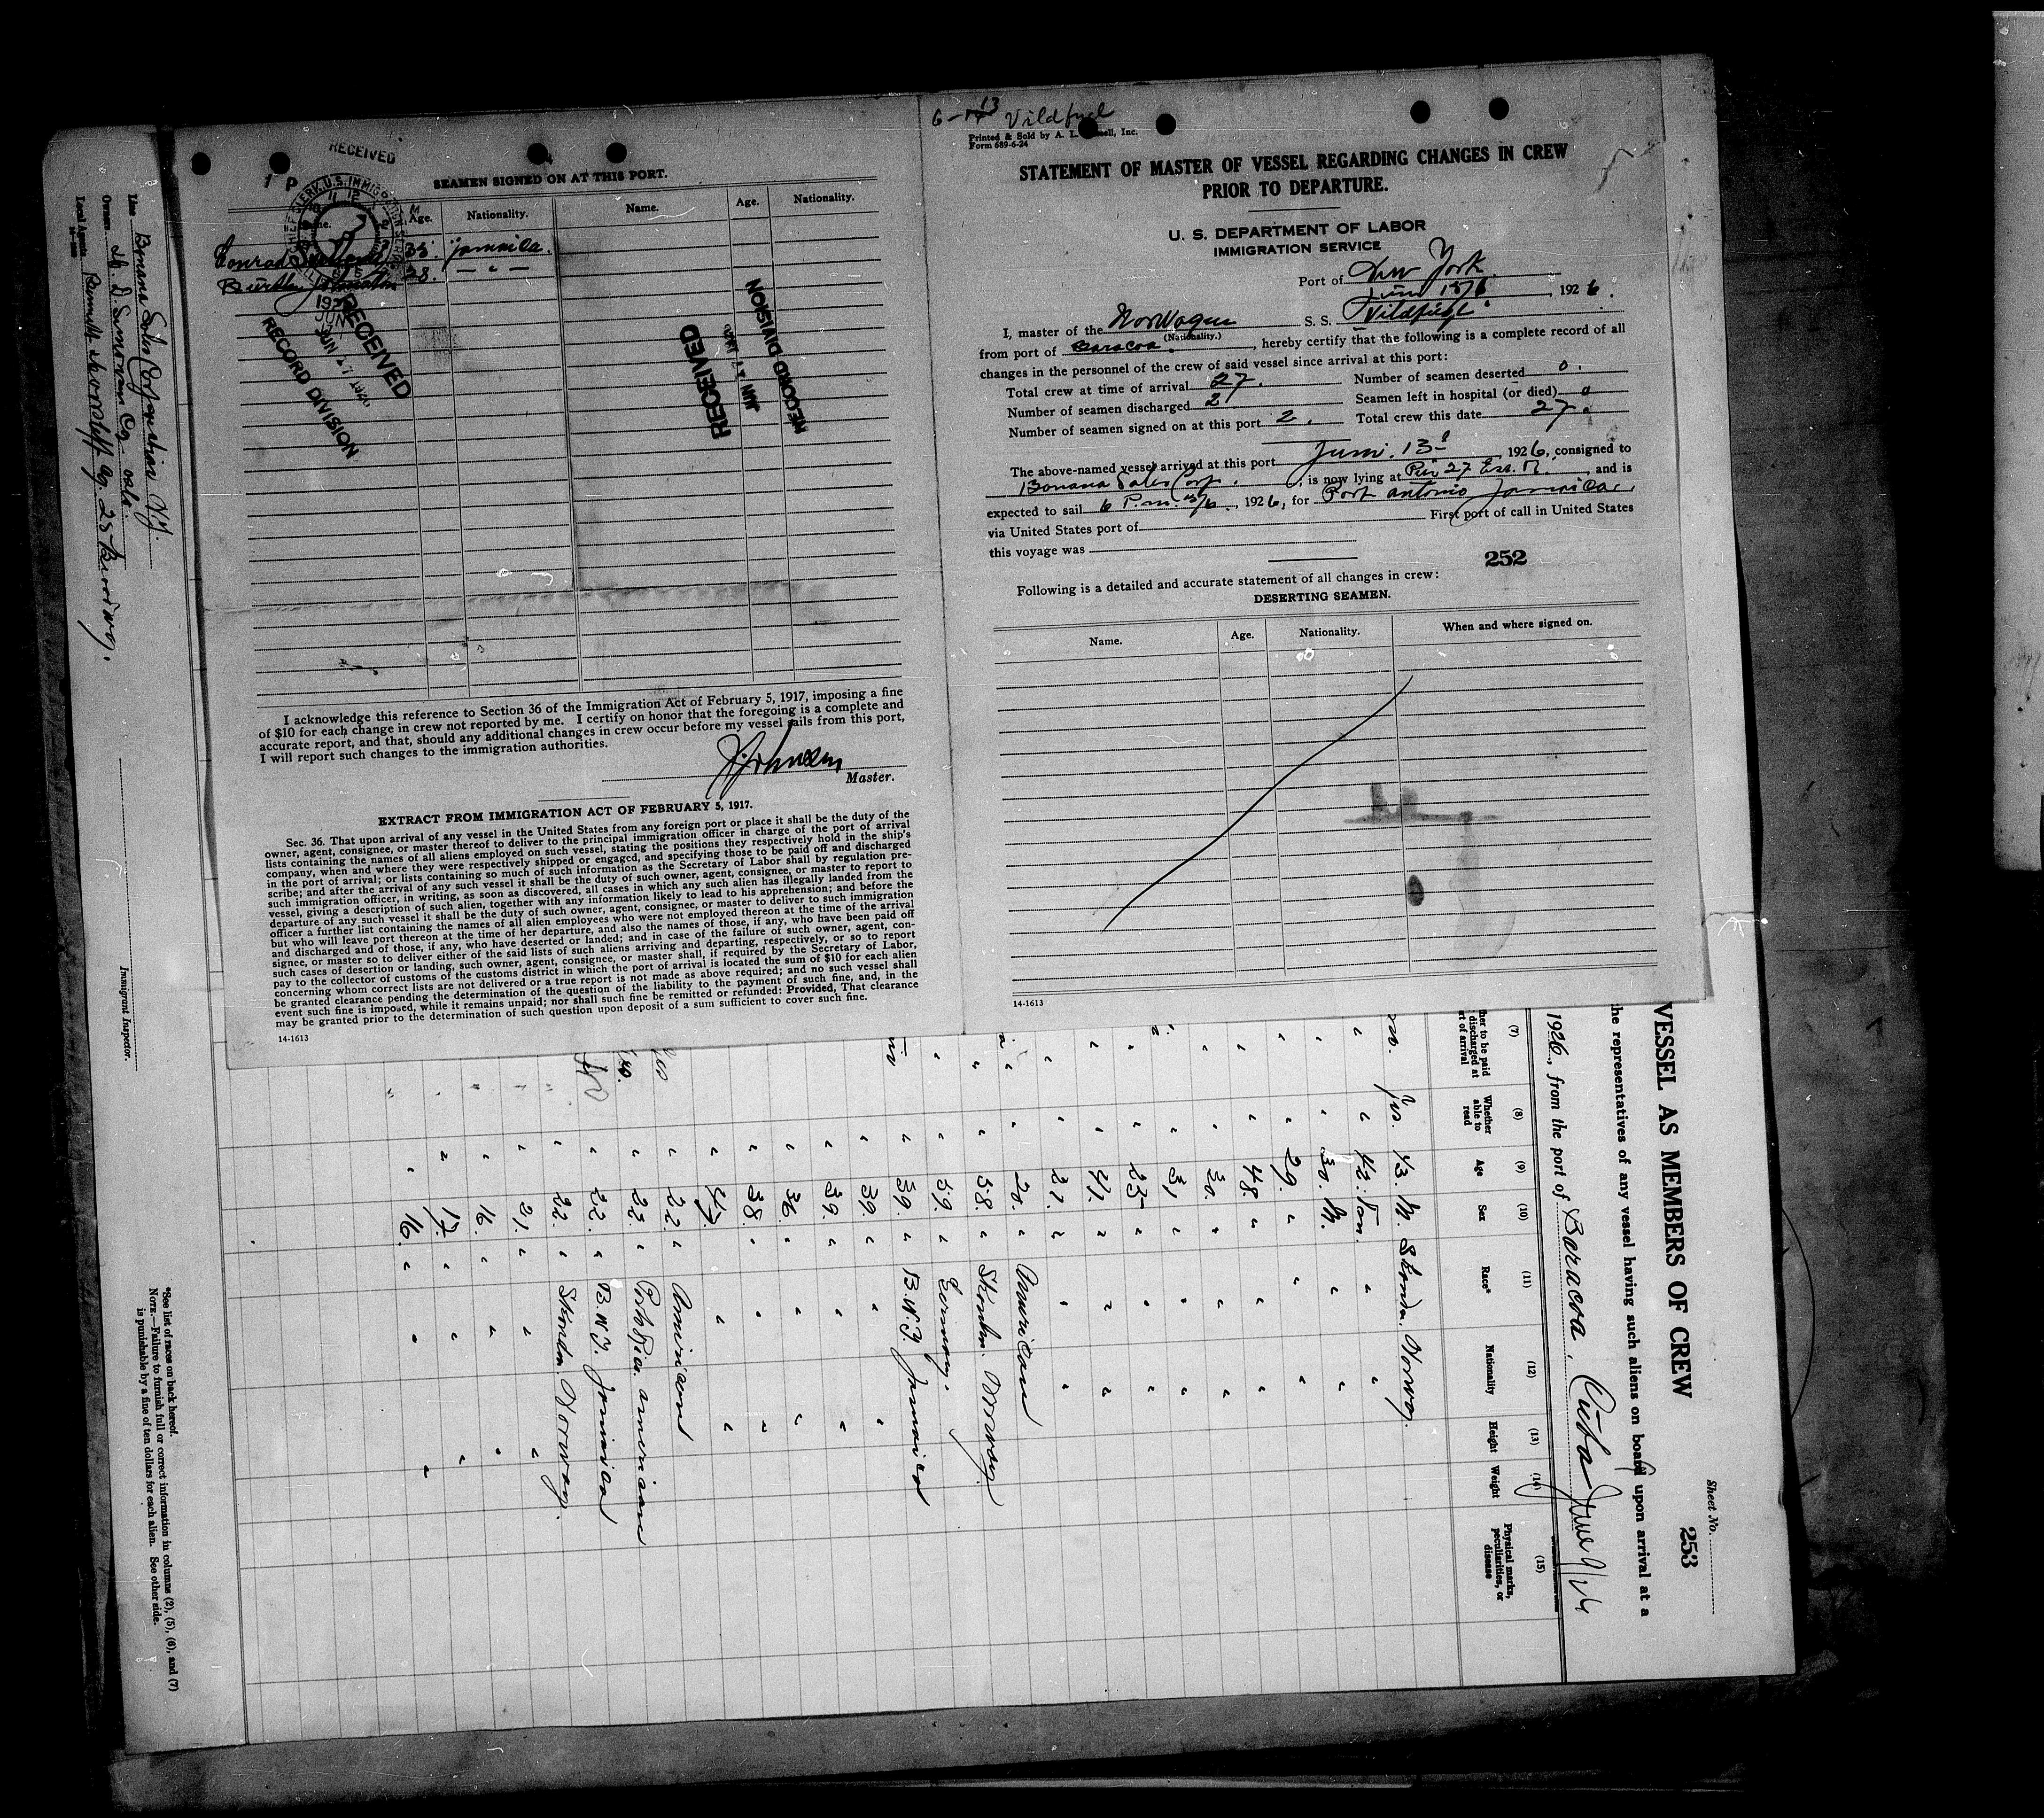 RECEIVED
1 P
SEAMEN SIGNED ON AT THIS PORT.
Age. Nationality. Name. Age. Nationality.
Conrad 35. Jamaica.
28. — " —
RECEIVED
RECORD DIVISION
RECEIVED
RECORD DIVISION
I acknowledge this reference to Section 36 of the Immigration Act of February 5, 1917, imposing a fine
of $10 for each change in crew not reported by me. I certify on honor that the foregoing is a complete and
accurate report, and that, should any additional changes in crew occur before my vessel sails from this port,
I will report such changes to the immigration authorities.
Johnsen
Master.
EXTRACT FROM IMMIGRATION ACT OF FEBRUARY 5, 1917.
Sec. 36. That upon arrival of any vessel in the United States from any foreign port or place it shall be the duty of the
owner, agent, consignee, or master thereof to deliver to the principal immigration officer in charge of the port of arrival
lists containing the names of all aliens employed on such vessel, stating the positions they respectively hold in the ship's
company, when and where they were respectively shipped or engaged, and specifying those to be paid off and discharged
in the port of arrival; or lists containing so much of such information as the Secretary of Labor shall by regulation pre-
scribe; and after the arrival of any such vessel it shall be the duty of such owner, agent, consignee, or master to report to
such immigration officer, in writing, as soon as discovered, all cases in which any such alien has illegally landed from the
vessel, giving a description of such alien, together with any information likely to lead to his apprehension; and before the
departure of any such vessel it shall be the duty of such owner, agent, consignee, or master to deliver to such immigration
officer a further list containing the names of all alien employees who were not employed thereon at the time of the arrival
but who will leave port thereon at the time of her departure, and also the names of those, if any, who have been paid off
and discharged and of those, if any, who have deserted or landed; and in case of the failure of such owner, agent, con-
signee, or master so to deliver either of the said lists of such aliens arriving and departing, respectively, or so to report
such cases of desertion or landing, such owner, agent, consignee, or master shall, if required by the Secretary of Labor,
pay to the collector of customs of the customs district in which the port of arrival is located the sum of $10 for each alien
concerning whom correct lists are not delivered or a true report is not made as above required; and no such vessel shall
be granted clearance pending the determination of the question of the liability to the payment of such fine, and, in the
event such fine is imposed, while it remains unpaid; nor shall such fine be remitted or refunded: Provided, That clearance
may be granted prior to the determination of such question upon deposit of a sum sufficient to cover such fine.
14-1613
Vildfugl
Printed & Sold by A. L. Inc.
Form 689-6-24
STATEMENT OF MASTER OF VESSEL REGARDING CHANGES IN CREW
PRIOR TO DEPARTURE.
U. S. DEPARTMENT OF LABOR
IMMIGRATION SERVICE
Port of New York
June 15/6, 1926.
I, master of the Norwegian S. S. Vildfugl
(Nationality.)
from port of Baracoa, hereby certify that the following is a complete record of all
changes in the personnel of the crew of said vessel since arrival at this port:
Total crew at time of arrival 27. Number of seamen deserted 0.
Number of seamen discharged 2 Seamen left in hospital (or died) 0
Number of seamen signed on at this port 2. Total crew this date 27.
The above-named vessel arrived at this port June. 13, 1926, consigned to
Banana Sales Corp., is now lying at Pier 27 East R., and is
expected to sail 6 P.m. 15/6, 1926, for Port Antonio Jamaica.
via United States port of First port of call in United States
this voyage was
252
Following is a detailed and accurate statement of all changes in crew:
DESERTING SEAMEN.
Name. Age. Nationality. When and where signed on.
14-1613
Sheet No.
253
VESSEL AS MEMBERS OF CREW
the representatives of any vessel having such aliens on board upon arrival at a
1926, from the port of Baracoa, Cuba June 9/26
(7) (8) (9) (10) (11) (12) (13) (14) (15)
Whether able to read Age Sex Race* Nationality Height Weight Physical marks, peculiarities, or disease
Yes. 43. M. Skandn. Norway.
" 42. " " "
" 30. M. " "
" 29. " " "
" 48. " " "
" 30. " " "
" 31. " " "
" 23 " " "
" 41. " " "
" 21. " " "
" 20. " American
" 38. " Skandn. Norway
" 39. " Germany.
" 39. " B.W.I. Jamaica
" 39. " " "
" 39. " " "
" 36. " " "
" 38. " " "
" 47. " " "
" 22. " American
" 22. " Porto Rico. American
" 22. " B.W.I. Jamaica
" 22. " Skandn. Norway.
" 21. " " "
" 16. " " "
" 17. " " "
" 16. " " "
Line Banana Sales Corporation N.Y.
Owners Oslo
Local Agents Bennett
Immigrant Inspector.
*See list of races on back hereof.
NOTE.—Failure to furnish full or correct information in columns (2), (5), (6), and (7)
is punishable by a fine of ten dollars for each alien. See other side.